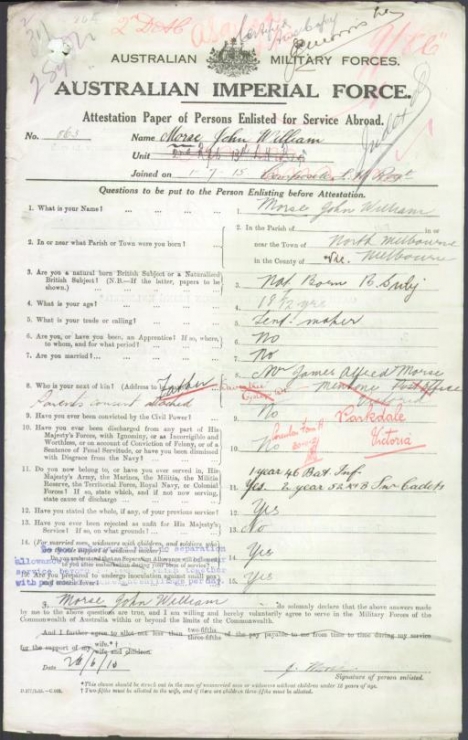 2nd D of H
Certified
true copy
AUSTRALIAN MILITARY FORCES.
AUSTRALIAN IMPERIAL FORCE.
Attestation Paper of Persons Enlisted for Service Abroad.
No. 863 Name Morse John William
Unit
Joined on 1-7-15
Questions to be put to the Person Enlisting before Attestation.
1. What is your Name? 1. Morse John William
2. In or near what Parish or Town were you born? 2. In the Parish of in or
near the Town of North Melbourne
in the County of Vic. Melbourne
3. Are you a natural born British Subject or a Naturalised
British Subject? (N.B.—If the latter, papers to be
shown.) 3. Nat Born B. Subj
4. What is your age? 4. 18
5. What is your trade or calling? 5. Tent maker
6. Are you, or have you been, an Apprentice? If so, where,
to whom, and for what period? 6. No
7. Are you married? 7. No
8. Who is your next of kin? (Address to Father 8. Mr James Alfred Morse
Mentone Post Office
Victoria
Parents consent attached
Parkdale
Victoria
9. Have you ever been convicted by the Civil Power? 9. No
10. Have you ever been discharged from any part of His
Majesty's Forces, with Ignominy, or as Incorrigible and
Worthless, or on account of Conviction of Felony, or of a
Sentence of Penal Servitude, or have you been dismissed
with Disgrace from the Navy? 10. No
11. Do you now belong to, or have you ever served in, His
Majesty's Army, the Marines, the Militia, the Militia
Reserve, the Territorial Force, Royal Navy, or Colonial
Forces? If so, state which, and if not now serving,
state cause of discharge 11. Yes. 1 year 46 Batt Inf.
2 year Snr Cadets
12. Have you stated the whole, if any, of your previous service? 12. Yes
13. Have you ever been rejected as unfit for His Majesty's
Service? If so, on what grounds? 13. No
14. (For married men, widowers with children, and
14. Yes
separation
allowance
service
together
with pay
15. Are you prepared to undergo inoculation against small pox
and enteric fever? 15. Yes
I, Morse John William do solemnly declare that the above answers made
by me to the above questions are true, and I am willing and hereby voluntarily agree to serve in the Military Forces of the
Commonwealth of Australia within or beyond the limits of the Commonwealth.
And I further agree to allot not less than two-fifths
three-fifths of the pay payable to me from time to time during my service
for the support of my wife.
wife and children.
Date 26/6/15 J. Morse
Signature of person enlisted.
*This clause should be struck out in the case of unmarried men or widowers without children under 18 years of age.
† Two-fifths must be allotted to the wife, and if there are children three-fifths must be allotted.